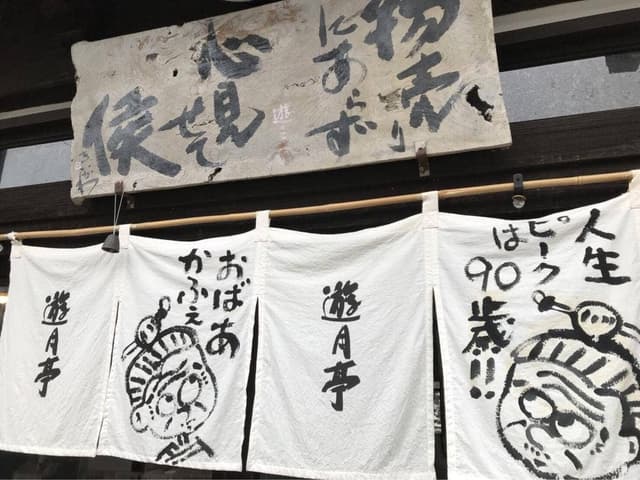 物売り
にあらず
心見
せて
候
人生
ピーク
は90歳!!
遊月亭
おばあ
かふぇ
遊月亭